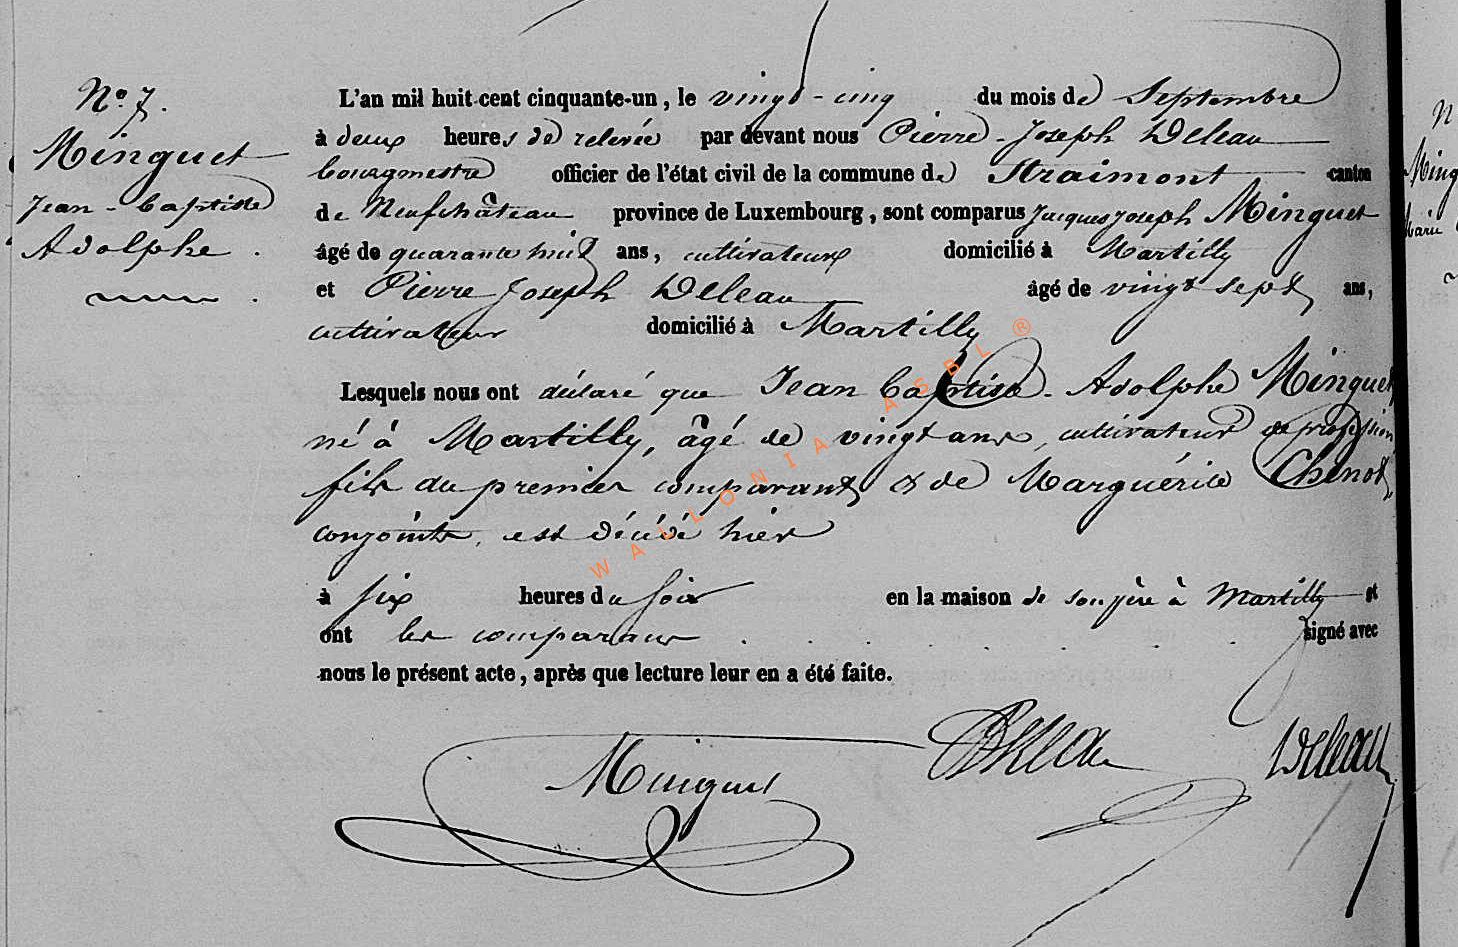 N° 7.
Minguet
Jean-baptiste
Adolphe.
L'an mil huit cent cinquante-un, le vingt-cinq du mois de Septembre
à deux heures de relevée par devant nous Pierre-Joseph Deleau
bourgmestre officier de l'état civil de la commune de Straimont canton
de Neufchâteau province de Luxembourg, sont comparus Jacques Joseph Minguet
âgé de quarante huit ans, cultivateur domicilié à Martilly
et Pierre Joseph Deleau âgé de vingt sept ans,
cultivateur domicilié à Martilly
Lesquels nous ont déclaré que Jean baptiste-Adolphe Minguet
né à Martilly, âgé de vingt ans, cultivateur de profession
fils du premier comparant & de Marguérite Chenot,
conjoints, est décédé hier
à six heures du soir en la maison de son père à Martilly et
ont les comparans signé avec
nous le présent acte, après que lecture leur en a été faite.
Minguet Deleau Deleau
WALLONIA ASBL ®
N
Ming
Marie